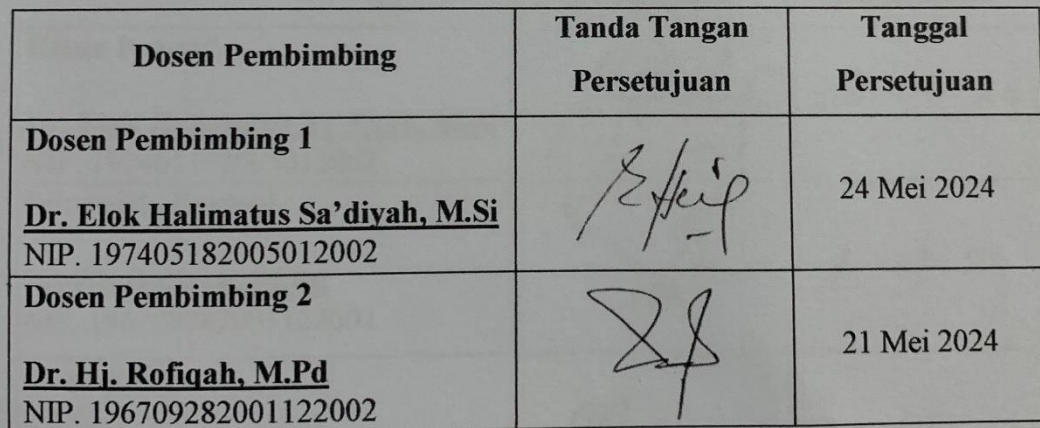 Dosen Pembimbing
Tanda Tangan
Persetujuan
Tanggal
Persetujuan
Dosen Pembimbing 1
Dr. Elok Halimatus Sa’diyah, M.Si
NIP. 197405182005012002
24 Mei 2024
Dosen Pembimbing 2
Dr. Hj. Rofiqah, M.Pd
NIP. 196709282001122002
21 Mei 2024